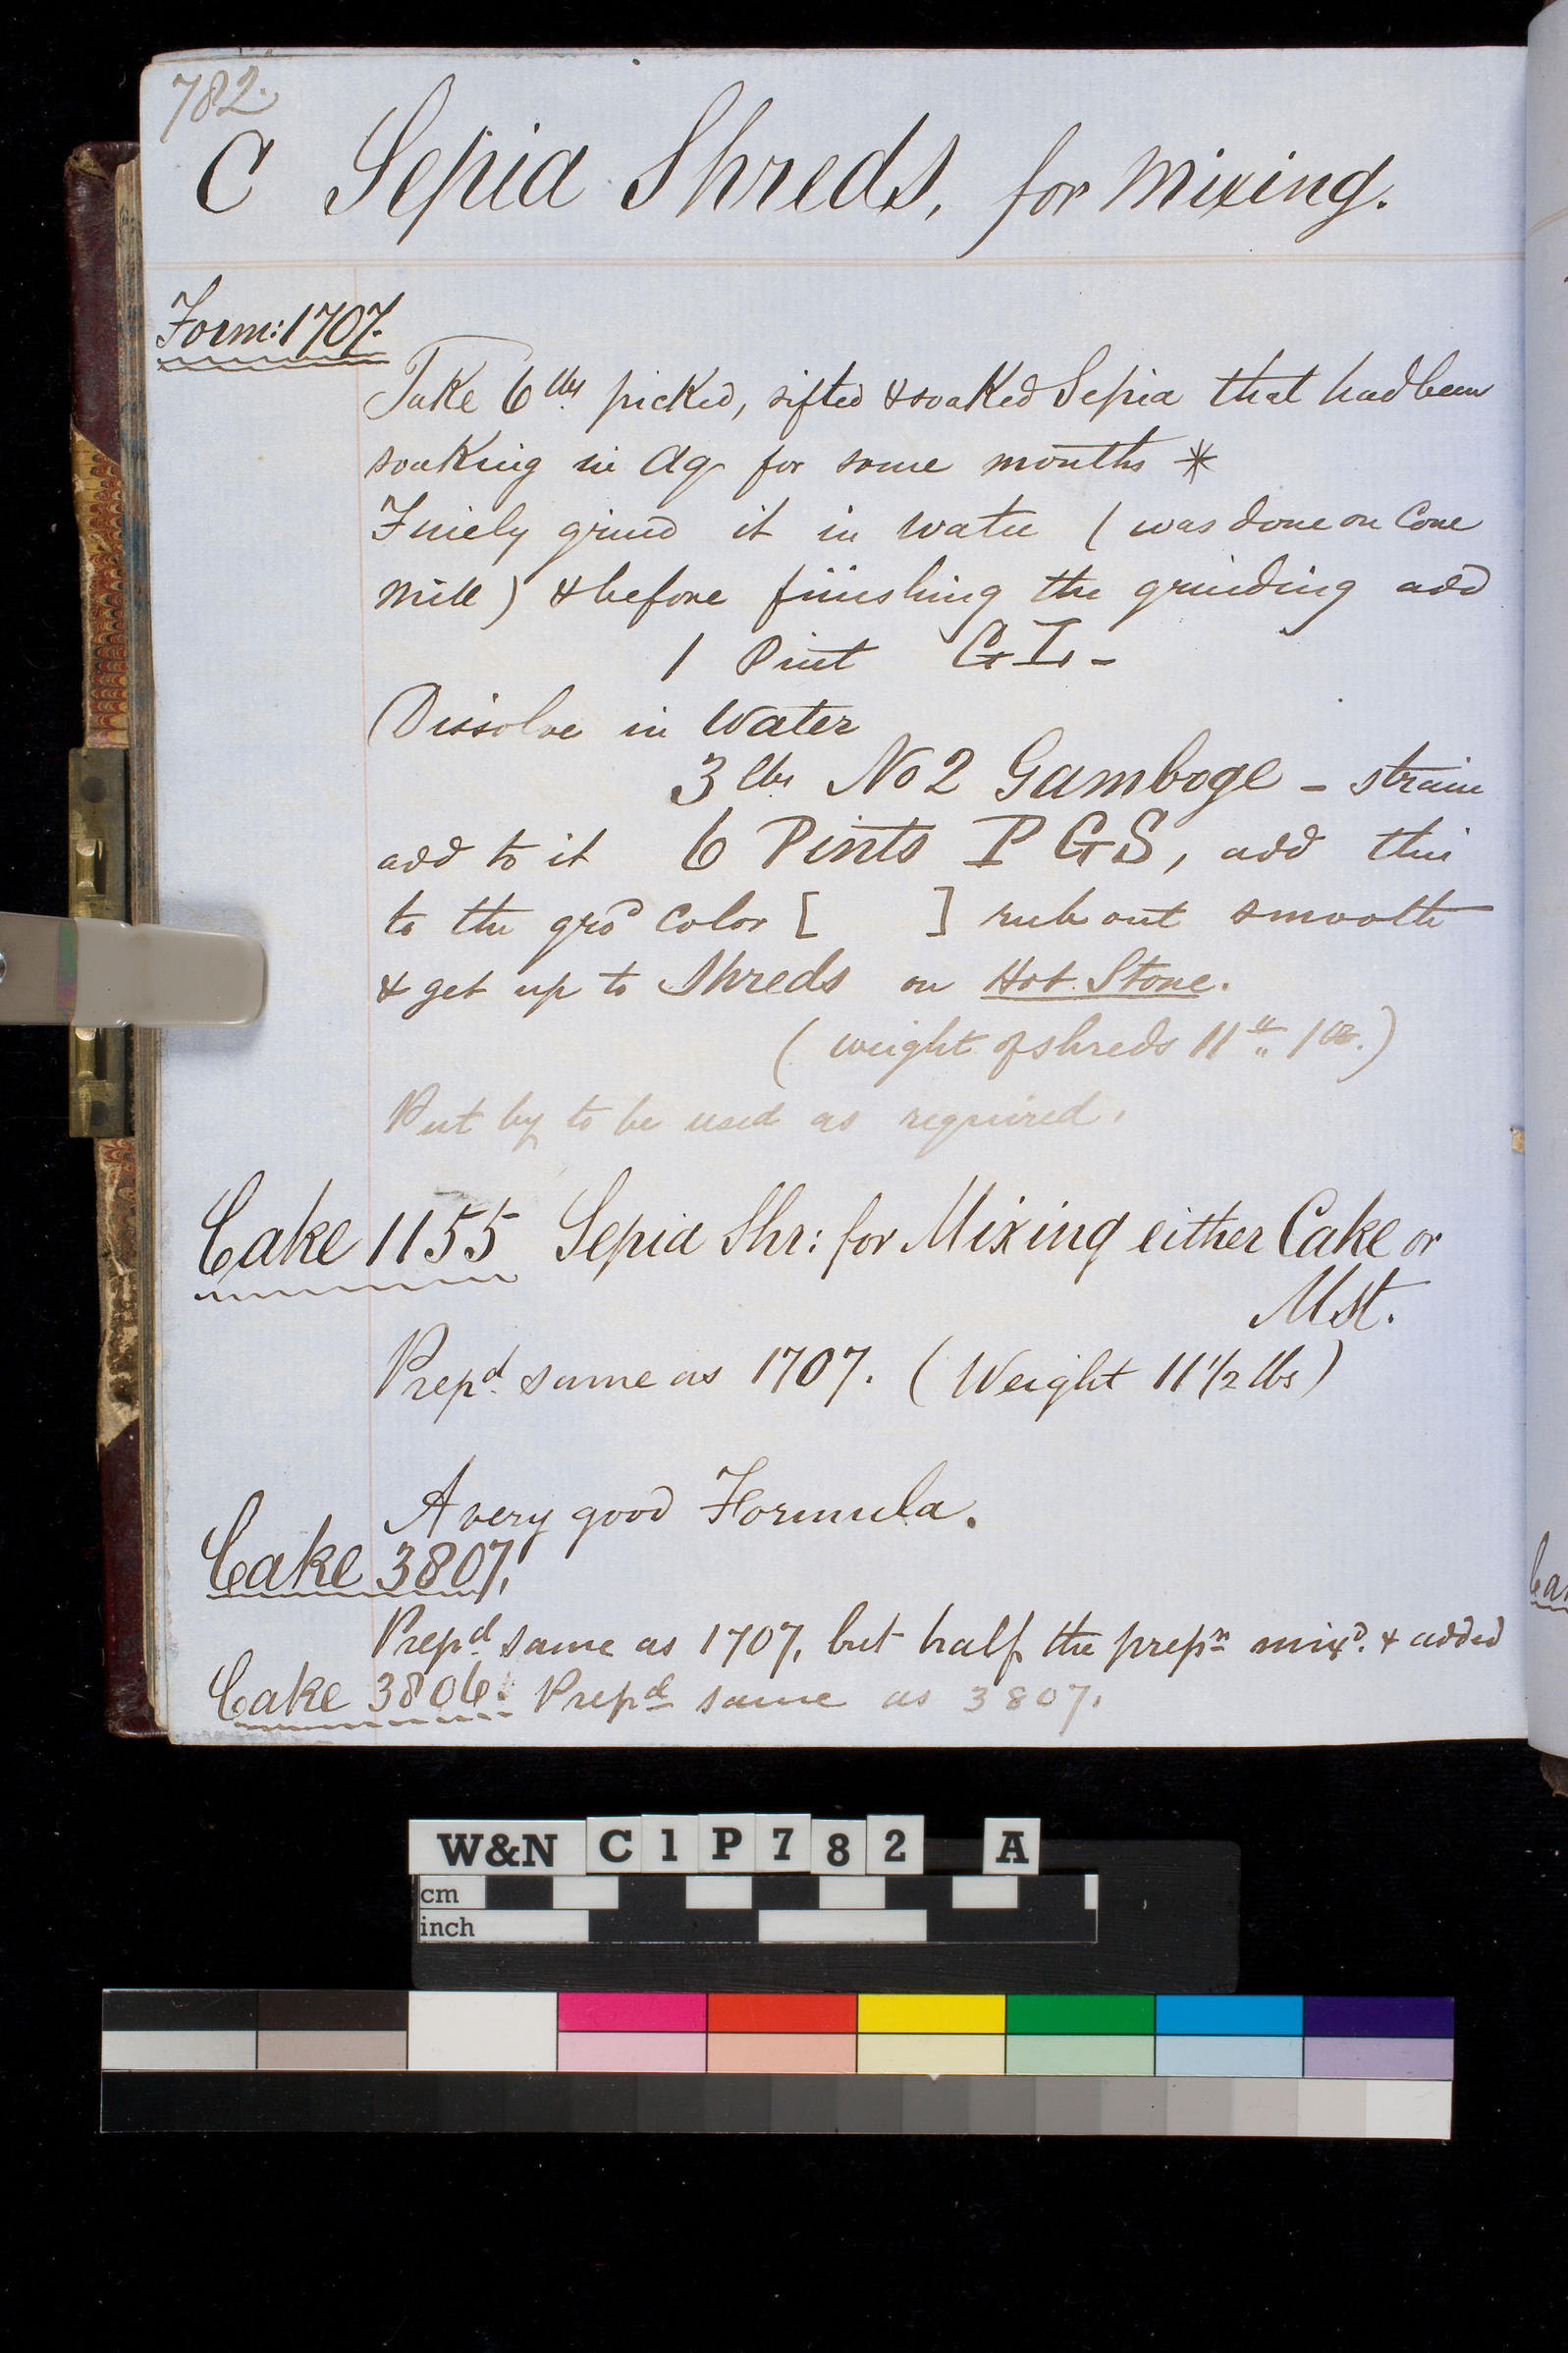 782.
C Sepia Shreds, for Mixing.
Form: 1707.
Take 6 lbs picked, sifted & soaked Sepia that had been
soaking in Aq for some months *
Finely grind it in water ( was done on Cone
Mill) & before finishing the grinding add
1 Pint GI -
Dissolve in Water
3 lbs No 2 Gamboge - strain
add to it 6 Pints P GS, add this
to the gro^d Color [ ] rub out smooth
& get up to Shreds on Hot Stone.
( weight of shreds 11 lb " 1 oz.)
Put by to be used as required.
Cake 1155 Sepia Shr: for Mixing either Cake or
Mst.
Prep^d. same as 1707. ( Weight 11 1/2 lbs)
A very good Formula.
Cake 3807.
Prep^d same as 1707, but half the prep^n mix^d. & added
Cake 3806. Prep^d same as 3807.
W&N C1P782 A
cm
inch